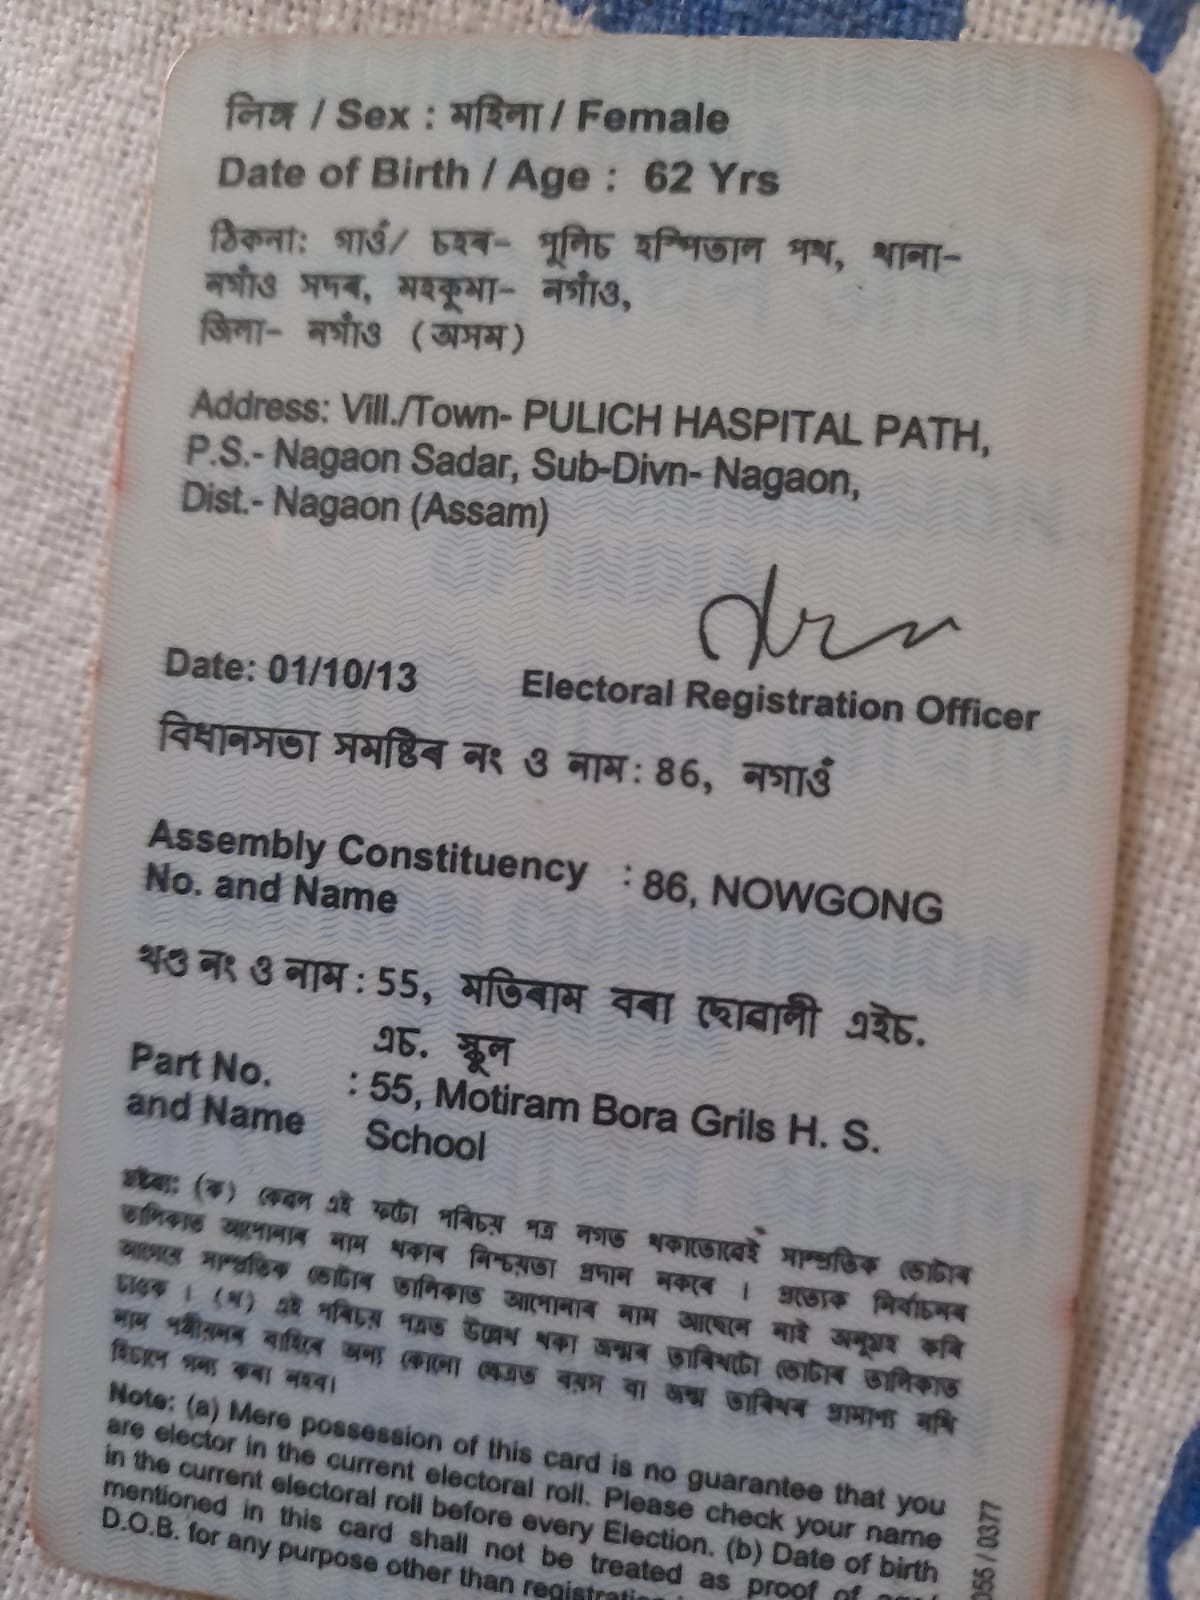 লিঙ্গ / Sex : মহিলা / Female
Date of Birth / Age : 62 Yrs
ঠিকনা: গাওঁ/ চহৰ- পুলিচ হস্পিতাল পথ, থানা-
নগাঁও সদৰ, মহকুমা- নগাঁও,
জিলা- নগাঁও (অসম)
Address: Vill./Town- PULICH HASPITAL PATH,
P.S.- Nagaon Sadar, Sub-Divn- Nagaon,
Dist.- Nagaon (Assam)
Date: 01/10/13 Electoral Registration Officer
বিধানসভা সমষ্টিৰ নং ও নাম : 86, নগাওঁ
Assembly Constituency : 86, NOWGONG
No. and Name
খণ্ড নং ও নাম : 55, মতিৰাম বৰা ছোৱালী এইচ.
এচ. স্কুল
Part No. : 55, Motiram Bora Grils H. S.
and Name School
দ্ৰষ্টব্য: (ক) কেৱল এই ফটো পৰিচয় পত্ৰ লগত থকাতোৱেই সাম্প্ৰতিক ভোটাৰ
তালিকাত আপোনাৰ নাম থকাৰ নিশ্চয়তা প্ৰদান নকৰে । প্ৰত্যেক নিৰ্বাচনৰ
আগেয়ে সাম্প্ৰতিক ভোটাৰ তালিকাত আপোনাৰ নাম আছেনে নাই অনুগ্ৰহ কৰি
চাওক । (খ) এই পৰিচয় পত্ৰত উল্লেখ থকা জন্মৰ তাৰিখটো ভোটাৰ তালিকাত
নাম পঞ্জীয়নৰ বাহিৰে অন্য কোনো ক্ষেত্ৰত বয়স বা জন্ম তাৰিখৰ প্ৰামাণ্য নথি
হিচাপে গণ্য কৰা নহব।
Note: (a) Mere possession of this card is no guarantee that you
are elector in the current electoral roll. Please check your name
in the current electoral roll before every Election. (b) Date of birth
mentioned in this card shall not be treated as proof of
D.O.B. for any purpose other than
055 / 0377